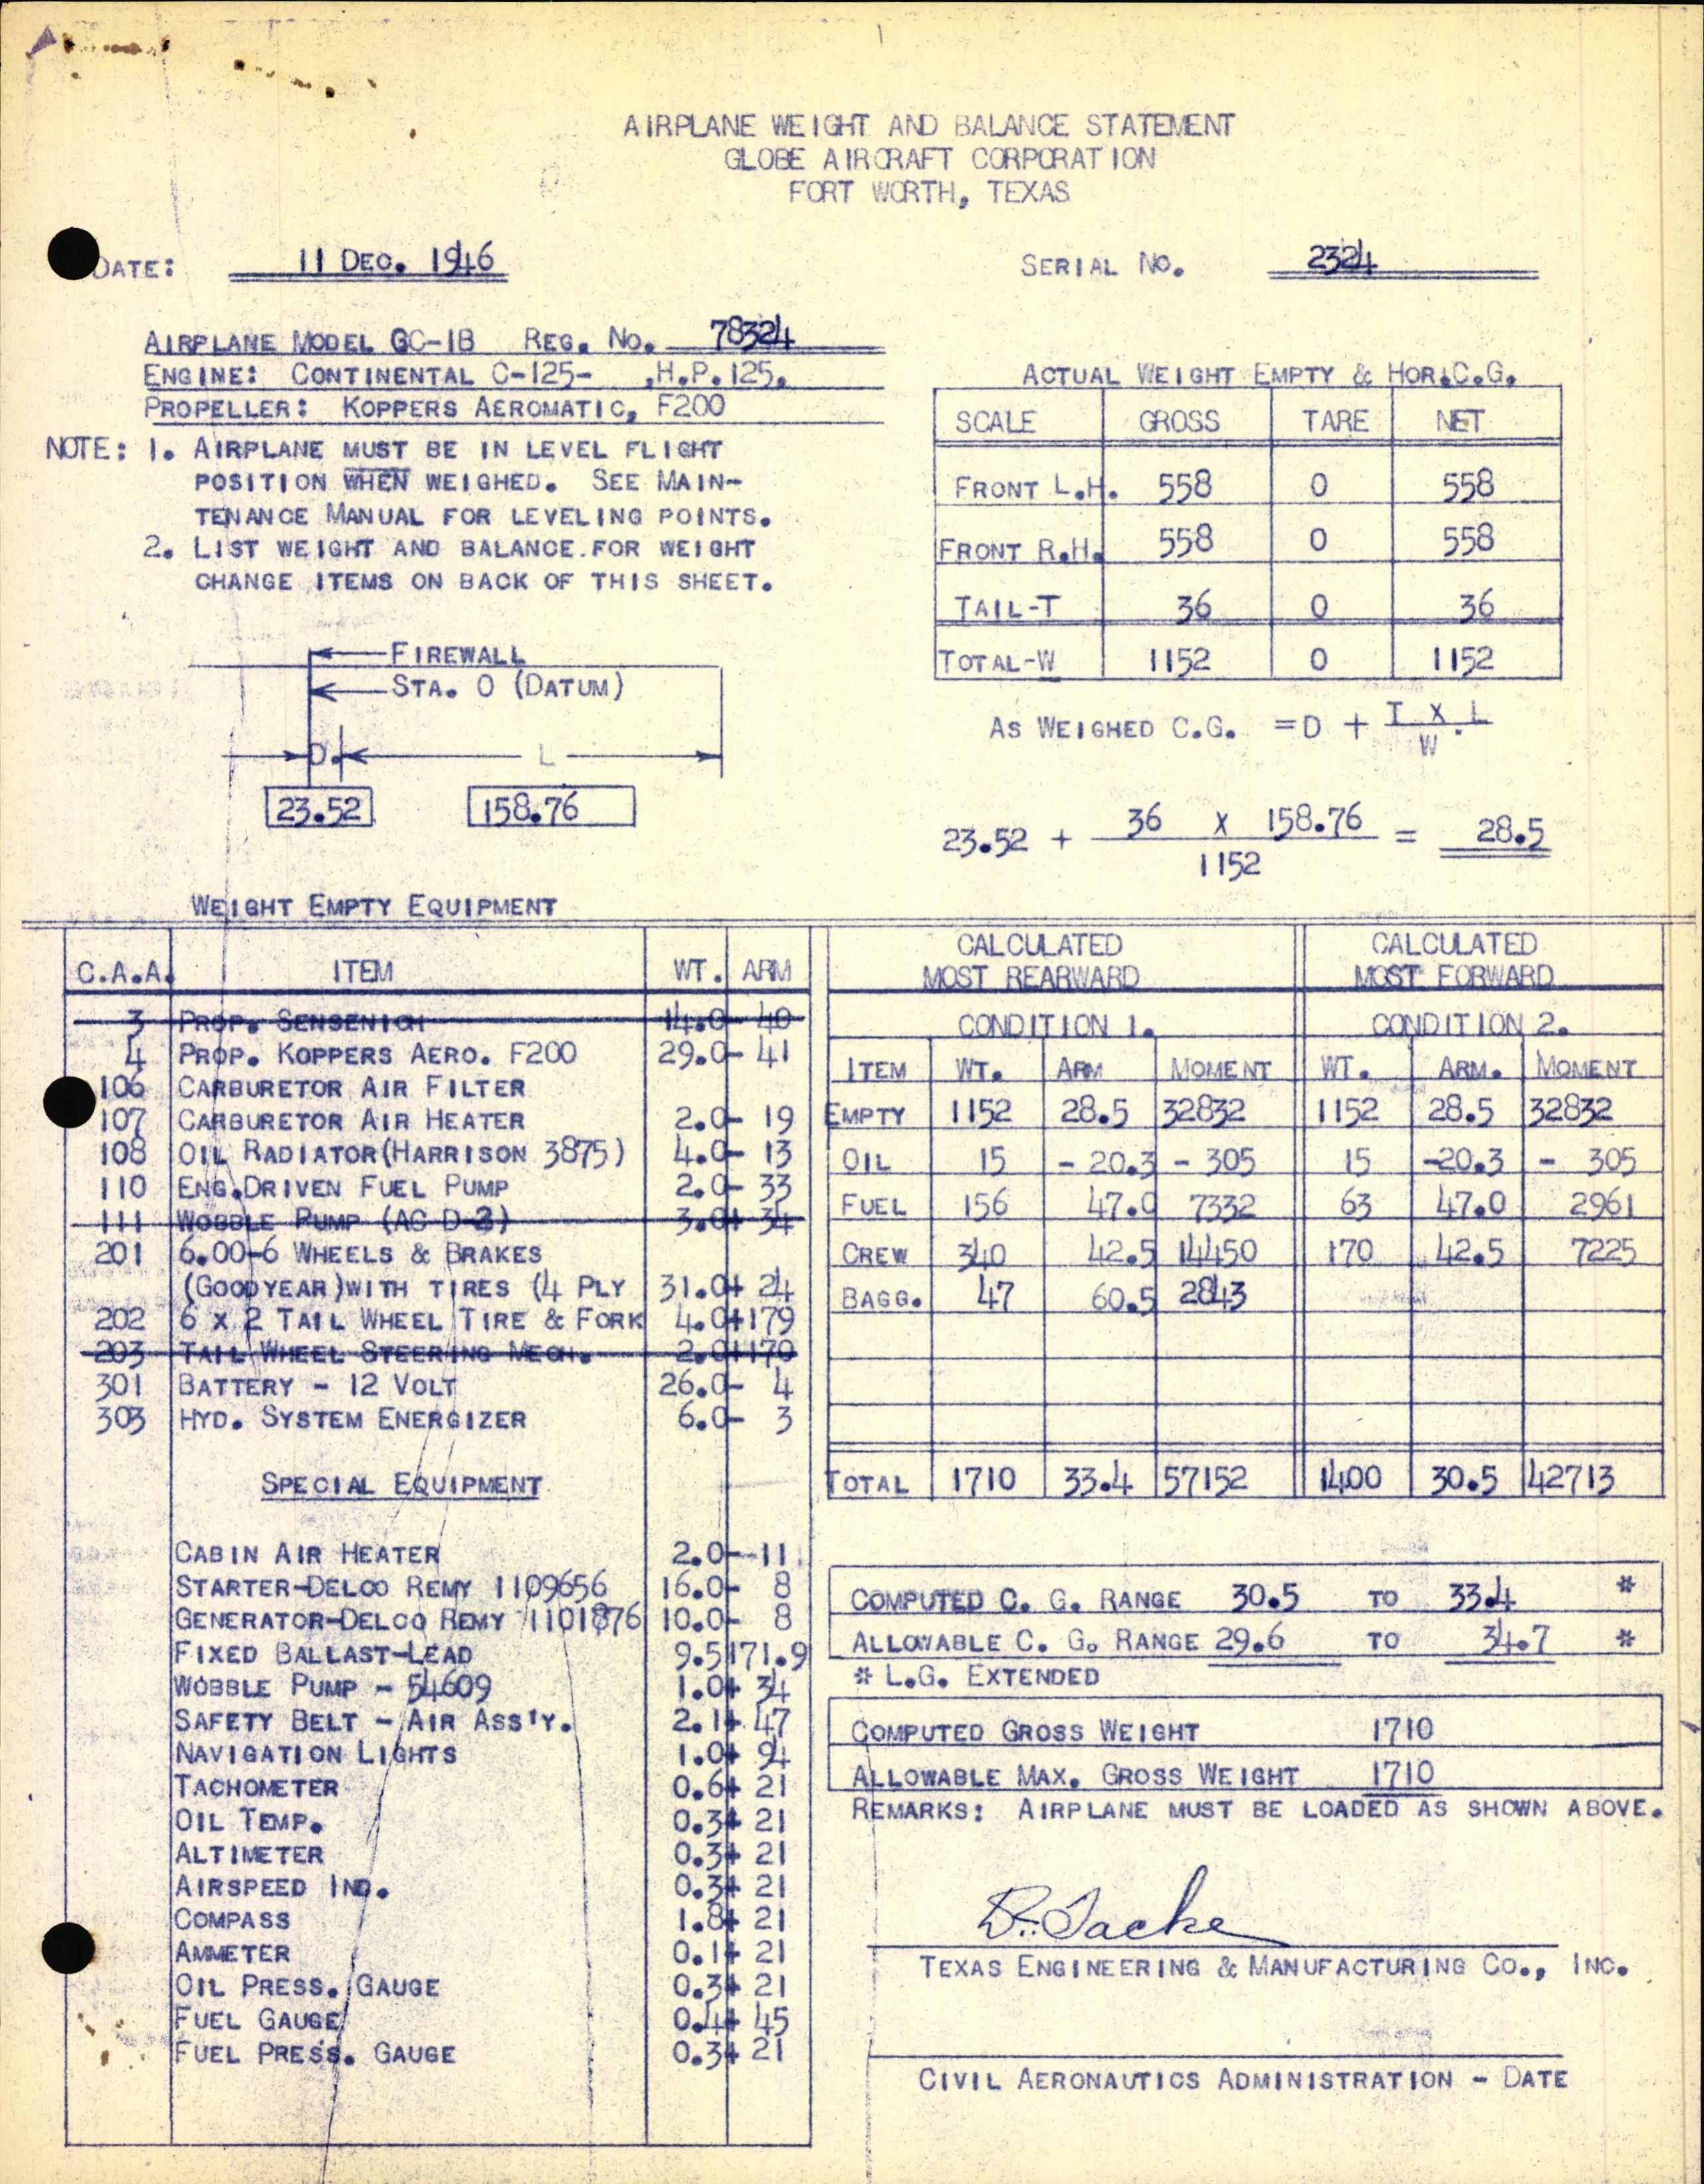 AIRPLANE WEIGHT AND BALANCE STATEMENT
GLOBE AIRCRAFT CORPORATION
FORT WORTH, TEXAS
DATE: 11 DEC. 1946
SERIAL NO. 2324
AIRPLANE MODEL GC-1B REG. NO. 78324
ENGINE: CONTINENTAL C-125- ,H.P.125,
PROPELLER: KOPPERS AEROMATIC, F200
NOTE: 1. AIRPLANE MUST BE IN LEVEL FLIGHT
POSITION WHEN WEIGHED. SEE MAIN-
TENANCE MANUAL FOR LEVELING POINTS.
2. LIST WEIGHT AND BALANCE FOR WEIGHT
CHANGE ITEMS ON BACK OF THIS SHEET.
FIREWALL
STA. 0 (DATUM)
D. L
23.52 158.76
ACTUAL WEIGHT EMPTY & HOR.C.G.
SCALE GROSS TARE NET
FRONT L.H. 558 0 558
FRONT R.H. 558 0 558
TAIL-T 36 0 36
TOTAL-W 1152 0 1152
AS WEIGHED C.G. = D + T X L
W
23.52 + 36 X 158.76 = 28.5
1152
WEIGHT EMPTY EQUIPMENT
C.A.A. ITEM WT. ARM
3 PROP. SENSENICH 14.0 - 40
4 PROP. KOPPERS AERO. F200 29.0 - 41
106 CARBURETOR AIR FILTER
107 CARBURETOR AIR HEATER 2.0 - 19
108 OIL RADIATOR(HARRISON 3875) 4.0 - 13
110 ENG.DRIVEN FUEL PUMP 2.0 - 33
111 WOBBLE PUMP (AC D-2) 3.0 + 34
201 6.00-6 WHEELS & BRAKES
(GOODYEAR)WITH TIRES (4 PLY 31.0 + 24
202 6 X 2 TAIL WHEEL TIRE & FORK 4.0 +179
203 TAIL WHEEL STEERING MECH. 2.0 +170
301 BATTERY - 12 VOLT 26.0 - 4
303 HYD. SYSTEM ENERGIZER 6.0 - 3
SPECIAL EQUIPMENT
CABIN AIR HEATER 2.0 - 11
STARTER-DELCO REMY 1109656 16.0 - 8
GENERATOR-DELCO REMY 1101876 10.0 - 8
FIXED BALLAST-LEAD 9.5 171.9
WOBBLE PUMP - 54609 1.0 + 34
SAFETY BELT - AIR ASS'Y. 2.1 + 47
NAVIGATION LIGHTS 1.0 + 94
TACHOMETER 0.6 + 21
OIL TEMP. 0.3 + 21
ALTIMETER 0.3 + 21
AIRSPEED IND. 0.3 + 21
COMPASS 1.8 + 21
AMMETER 0.1 + 21
OIL PRESS. GAUGE 0.3 + 21
FUEL GAUGE 0.4 + 45
FUEL PRESS. GAUGE 0.3 + 21
CALCULATED CALCULATED
MOST REARWARD MOST FORWARD
CONDITION 1. CONDITION 2.
ITEM WT. ARM MOMENT WT. ARM. MOMENT
EMPTY 1152 28.5 32832 1152 28.5 32832
OIL 15 - 20.3 - 305 15 -20.3 - 305
FUEL 156 47.0 7332 63 47.0 2961
CREW 340 42.5 14450 170 42.5 7225
BAGG. 47 60.5 2843
TOTAL 1710 33.4 57152 1400 30.5 42713
COMPUTED C. G. RANGE 30.5 TO 33.4 *
ALLOWABLE C. G. RANGE 29.6 TO 34.7 *
* L.G. EXTENDED
COMPUTED GROSS WEIGHT 1710
ALLOWABLE MAX. GROSS WEIGHT 1710
REMARKS: AIRPLANE MUST BE LOADED AS SHOWN ABOVE.
TEXAS ENGINEERING & MANUFACTURING CO., INC.
CIVIL AERONAUTICS ADMINISTRATION - DATE